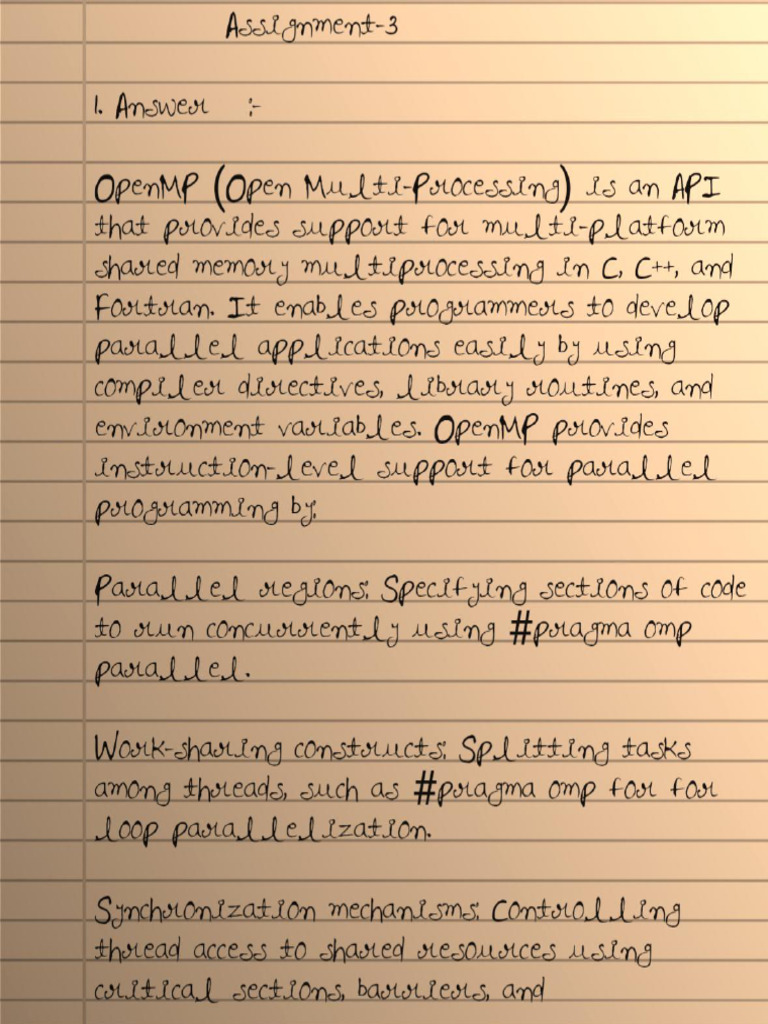 Assignment-3
1. Answer :-
OpenMP (Open Multi-Processing) is an API
that provides support for multi-platform
shared memory multiprocessing in C, C++, and
Fortran. It enables programmers to develop
parallel applications easily by using
compiler directives, library routines, and
environment variables. OpenMP provides
instruction-level support for parallel
programming by:
Parallel regions: Specifying sections of code
to run concurrently using #pragma omp
parallel.
Work-sharing constructs: Splitting tasks
among threads, such as #pragma omp for for
loop parallelization.
Synchronization mechanisms: Controlling
thread access to shared resources using
critical sections, barriers, and